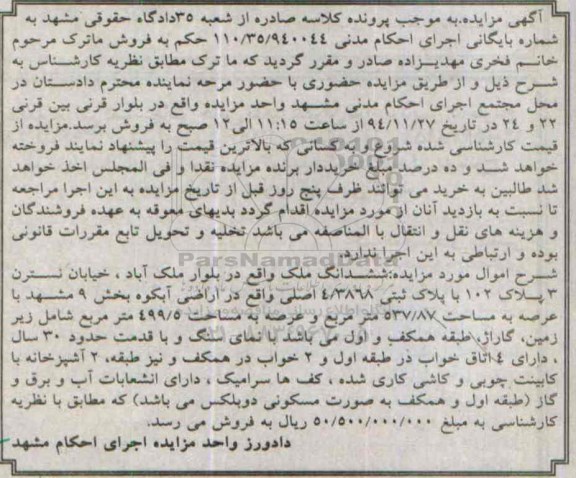 آگهی مزایده.به موجب پرونده کلاسه صادره از شعبه ۳۵دادگاه حقوقی مشهد به
شماره بایگانی اجرای احکام مدنی ۱۱۰/۳۵/۹۴۰۰۴۴ حکم به فروش ماترک مرحوم
خانم فخری مهدیزاده صادر و مقرر گردید که ما ترک مطابق نظریه کارشناس به
شرح ذیل و از طریق مزایده حضوری با حضور مرحه نماینده محترم دادستان در
محل مجتمع اجرای احکام مدنی مشهد واحد مزایده واقع در بلوار قرنی بین قرنی
۲۲ و ۲۴ در تاریخ ۹۴/۱۱/۲۷ از ساعت ۱۱:۱۵ الی۱۲ صبح به فروش برسد.مزایده از
قیمت کارشناسی شده شروع و به کسانی که بالاترین قیمت را پیشنهاد نمایند فروخته
خواهد شد و ده درصد مبلغ خریددار برنده مزایده نقدا و فی المجلس اخذ خواهد
شد طالبین به خرید می توانند ظرف پنج روز قبل از تاریخ مزایده به این اجرا مراجعه
تا نسبت به بازدید آنان از مورد مزایده اقدام گردد بدیهای معوقه به عهده فروشندگان
و هزینه های نقل و انتقال با المناصفه می باشد تخلیه و تحویل تابع مقررات قانونی
بوده و ارتباطی به این اجرا ندارد.
ParsNamadData
شرح اموال مورد مزایده:ششدانگ ملک واقع در بلوار ملک آباد ، خیابان نسترن
۳ پلاک ۱۰۲ با پلاک ثبتی ۴/۳۸۶۸ اصلی واقع در اراضی آبکوه بخش ۹ مشهد با
عرصه به مساحت ۵۳۷/۸۷ متر مربع و عرصه به مساحت ۴۹۹/۵ متر مربع شامل زیر
زمین، گاراژ، طبقه همکف و اول می باشد با نمای سنگ و با قدمت حدود ۳۰ سال
، دارای ۴ اتاق خواب در طبقه اول و ۲ خواب در همکف و نیز طبقه، ۲ آشپزخانه با
کابینت چوبی و کاشی کاری شده ، کف ها سرامیک ، دارای انشعابات آب و برق و
گاز (طبقه اول و همکف به صورت مسکونی دوبلکس می باشد) که مطابق با نظریه
کارشناسی به مبلغ ۵۰/۵۰۰/۰۰۰/۰۰۰ ریال به فروش می رسد.
دادورز واحد مزایده اجرای احکام مشهد